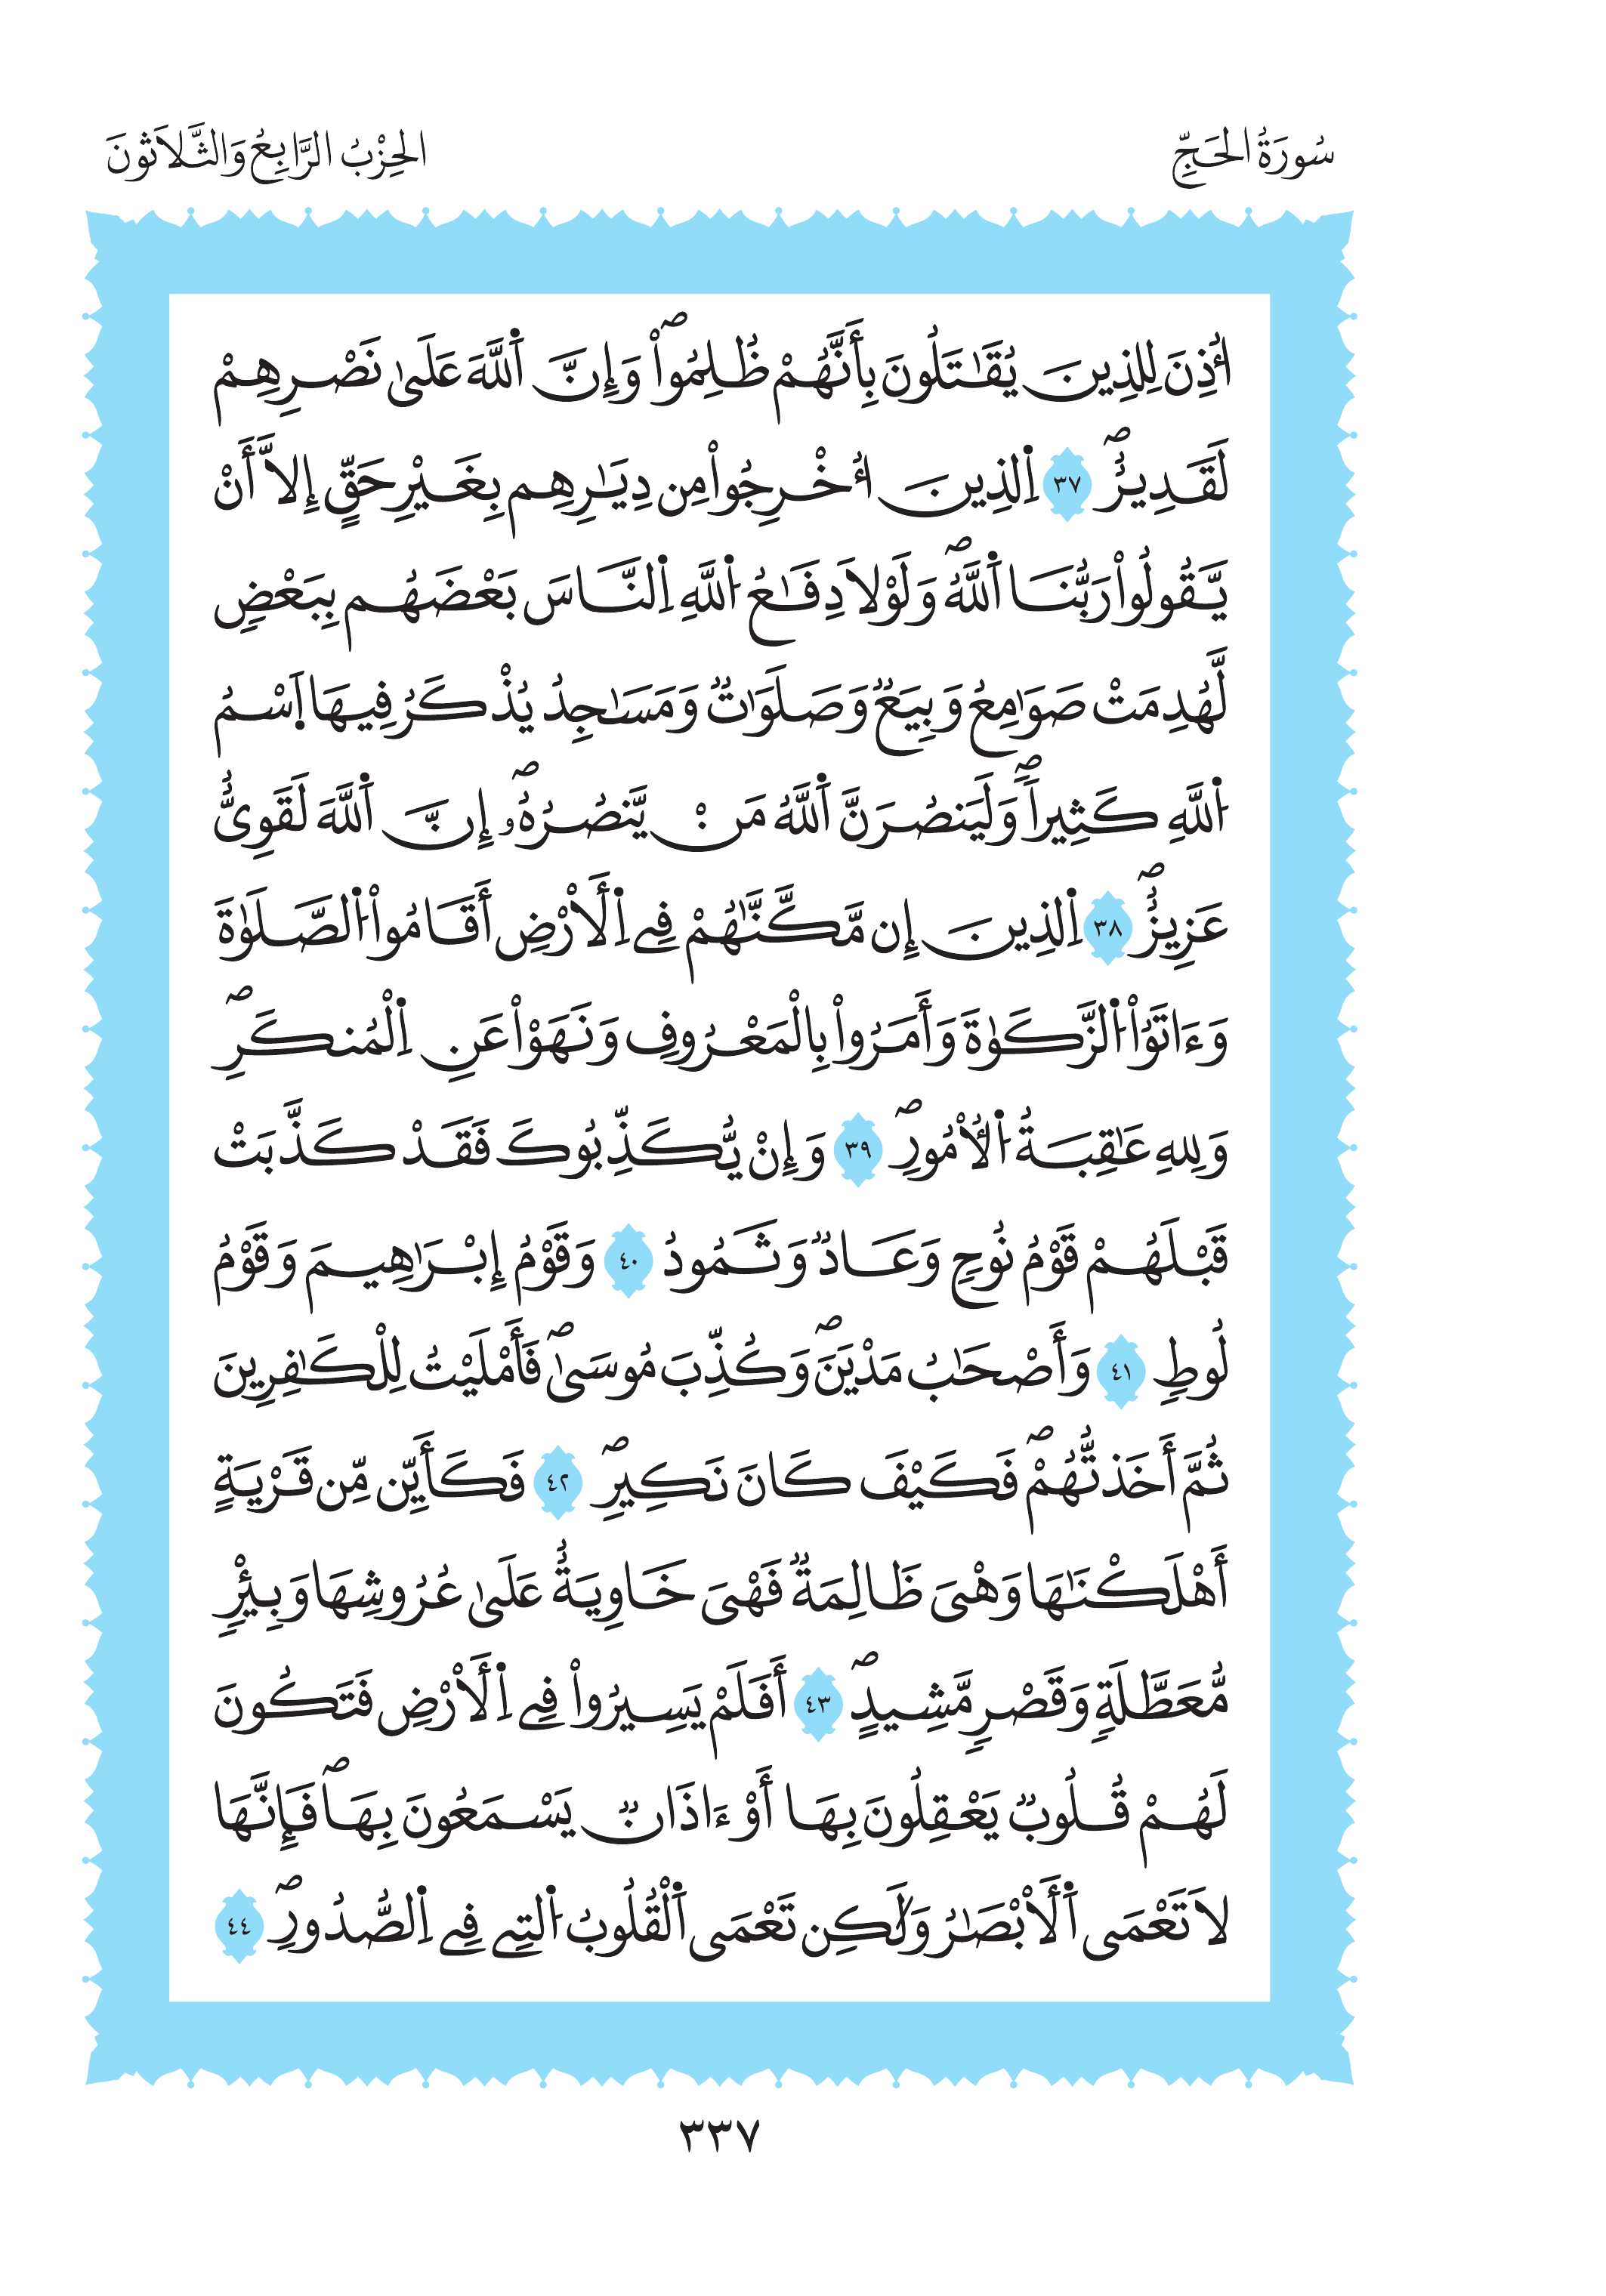 سُورَةُ الحَجِّ
الحِزْبُ الرَّابِعُ وَالثَّلَاثونَ
اُ۬ذِنَ لِلذِينَ يُقَٰتَلُونَ بِأَنَّهُمْ ظُلِمُواْۖ وَإِنَّ اَ۬للَّهَ عَلَىٰ نَصْرِهِمْ
لَقَدِيرٌۖ ٣٧ اِ۬لذِينَ أُخْرِجُواْ مِن دِيَٰرِهِم بِغَيْرِ حَقٍّ إِلَّا أَنْ
يَّقُولُواْ رَبُّنَا اَ۬للَّهُۖ وَلَوْلَا دِفَٰعُ اُ۬للَّهِ اِ۬لنَّاسَ بَعْضَهُم بِبَعْضٖ
لَّهُدِمَتْ صَوَٰمِعُ وَبِيَعٞ وَصَلَوَٰتٞ وَمَسَٰجِدُ يُذْكَرُ فِيهَا اَ۪سْمُ
اُ۬للَّهِ كَثِيراٗۖ وَلَيَنصُرَنَّ اَ۬للَّهُ مَنْ يَّنصُرُهُۥٓۖ إِنَّ اَ۬للَّهَ لَقَوِيٌّ
عَزِيزٌۖ ٣٨ اِ۬لذِينَ إِن مَّكَّنَّٰهُمْ فِے اِ۬لَأَرْضِ أَقَامُواْ اُ۬لصَّلَوٰةَ
وَءَاتَوُاْ اُ۬لزَّكَوٰةَ وَأَمَرُواْ بِالْمَعْرُوفِ وَنَهَوْاْ عَنِ اِ۬لْمُنكَرِۖ
وَلِلهِ عَٰقِبَةُ اُ۬لُأمُورِۖ ٣٩ وَإِنْ يُّكَذِّبُوكَ فَقَدْ كَذَّبَتْ
قَبْلَهُمْ قَوْمُ نُوحٖ وَعَادٞ وَثَمُودُ ٤٠ وَقَوْمُ إِبْرَٰهِيمَ وَقَوْمُ
لُوطٖ ٤١ وَأَصْحَٰبُ مَدْيَنَۖ وَكُذِّبَ مُوسَىٰۖ فَأَمْلَيْتُ لِلْكَٰفِرِينَ
ثُمَّ أَخَذتُّهُمْۖ فَكَيْفَ كَانَ نَكِيرِۖ ٤٢ فَكَأَيِّن مِّن قَرْيَةٍ
أَهْلَكْنَٰهَا وَهْيَ ظَالِمَةٞ فَهْيَ خَاوِيَةٌ عَلَىٰ عُرُوشِهَا وَبِئْرٖ
مُّعَطَّلَةٖ وَقَصْرٖ مَّشِيدٍۖ ٤٣ أَفَلَمْ يَسِيرُواْ فِے اِ۬لَأَرْضِ فَتَكُونَ
لَهُمْ قُلُوبٞ يَعْقِلُونَ بِهَا أَوْ ءَاذَانٞ يَسْمَعُونَ بِهَاۖ فَإِنَّهَا
لَا تَعْمَى اَ۬لَأَبْصَٰرُ وَلَٰكِن تَعْمَى اَ۬لْقُلُوبُ اُ۬لتِے فِے اِ۬لصُّدُورِۖ ٤٤
٣٣٧